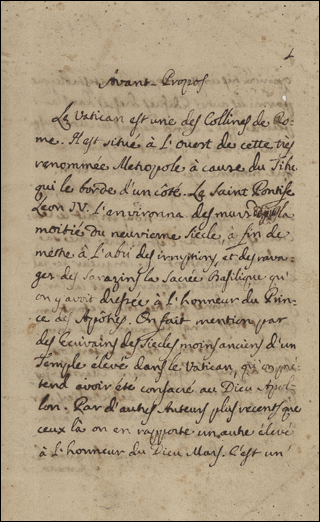 4
Avant-Propos
Le Vatican est une des Collines de Ro-
me. Il est situé à L'Ouest de cette très
renommée Metropole à cause du Tibre
qui le borde d'un côté. Le Saint Pontife
Leon IV. L'environna des murs la
moitié du neuvieme Siecle, à fin de
mettre à L'abri des irruptions, et des rava-
ges des Sarazins la Sacrée Basilique qu'
on y avoit dressée à L'honneur du Prin-
ce des Apôtres. On fait mention par
des Ecrivains des Siecles moins anciens d'un
Temple elevé dans le Vatican, qu'on pré-
tend avoir été consacré au Dieu Apol-
lon. Par d'autres Auteurs plus recents que
ceux là on en rapporte un autre élevé
à L'honneur du Dieu Mars. C'est un